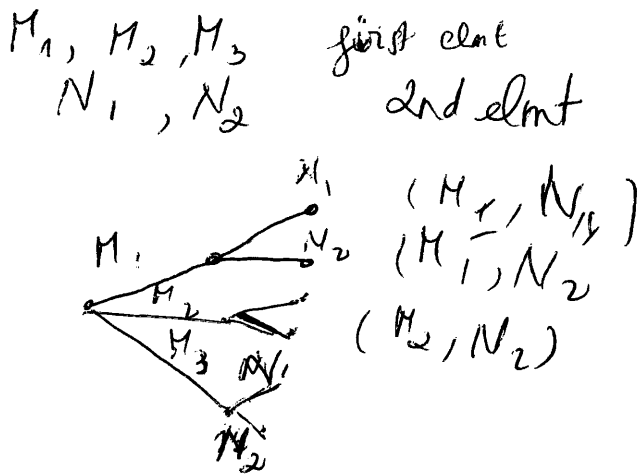 M₁, M₂, M₃ first elmt
N₁, N₂ 2nd elmt
N₁
M₁ N₂
M₂
M₃
N₁
N₂
(M₁, N₁)
(M₁, N₂
(M₂, N₂)